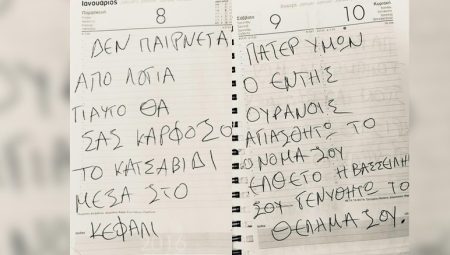 Ιανουάριος
Παρασκευή
8
ΔΕΝ ΠΑΙΡΝΕΤΑ
ΑΠΟ ΛΟΓΙΑ
ΓΙΑΥΤΟ ΘΑ
ΣΑΣ ΚΑΡΦΟΣΟ
ΤΟ ΚΑΤΣΑΒΙΔΙ
ΜΕΣΑ ΣΤΟ
ΚΕΦΑΛΙ
2016
Σάββατο
9
10
Κυριακή
ΠΑΤΕΡ ΥΜΩΝ
Ο ΕΝΤΗΣ
ΟΥΡΑΝΟΙΣ
ΑΓΙΑΣΘΗΤΩ ΤΟ
ΟΝΟΜΑ ΣΟΥ
ΕΛΘΕΤΟ Η
ΣΟΥ ΓΕΝΥΘΗΤΩ ΤΟ
ΘΕΛΗΜΑ ΣΟΥ.